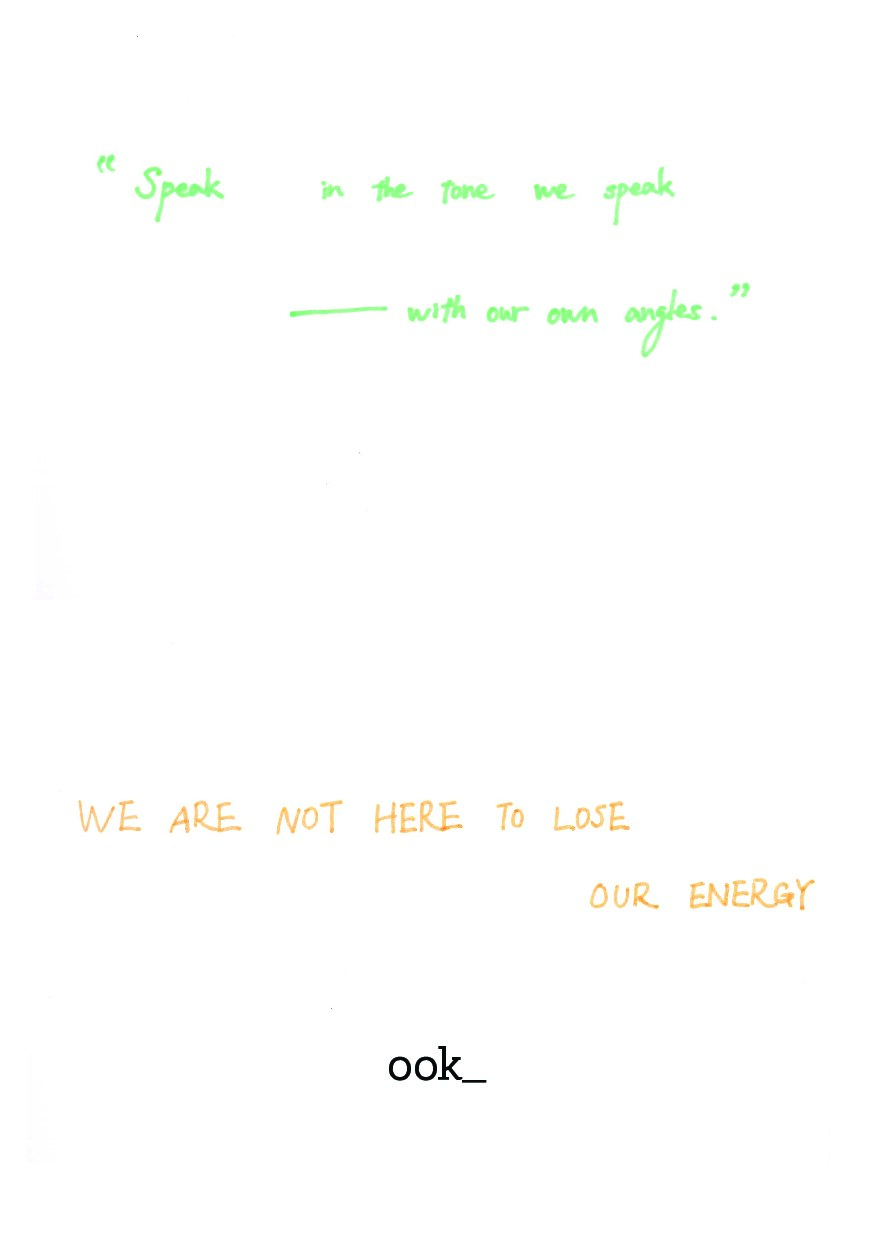 “ Speak in the tone we speak
—— with our own angles. ”
WE ARE NOT HERE TO LOSE
OUR ENERGY
ook_